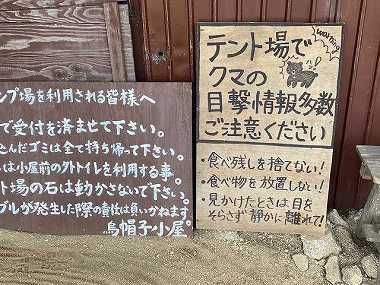 ンプ場を利用される皆様へ
で受付を済ませて下さい。
込んだゴミは全て持ち帰って下さい。
は小屋前の外トイレを利用する事。
ト場の石は動かさないで下さい。
ブルが発生した際の責任は負いかねます。
烏帽子小屋
テント場で
warning
クマの
目撃情報多数
ご注意ください
・食べ残しを捨てない!
・食べ物を放置しない!
・見かけたときは目を
そらさず静かに離れて!